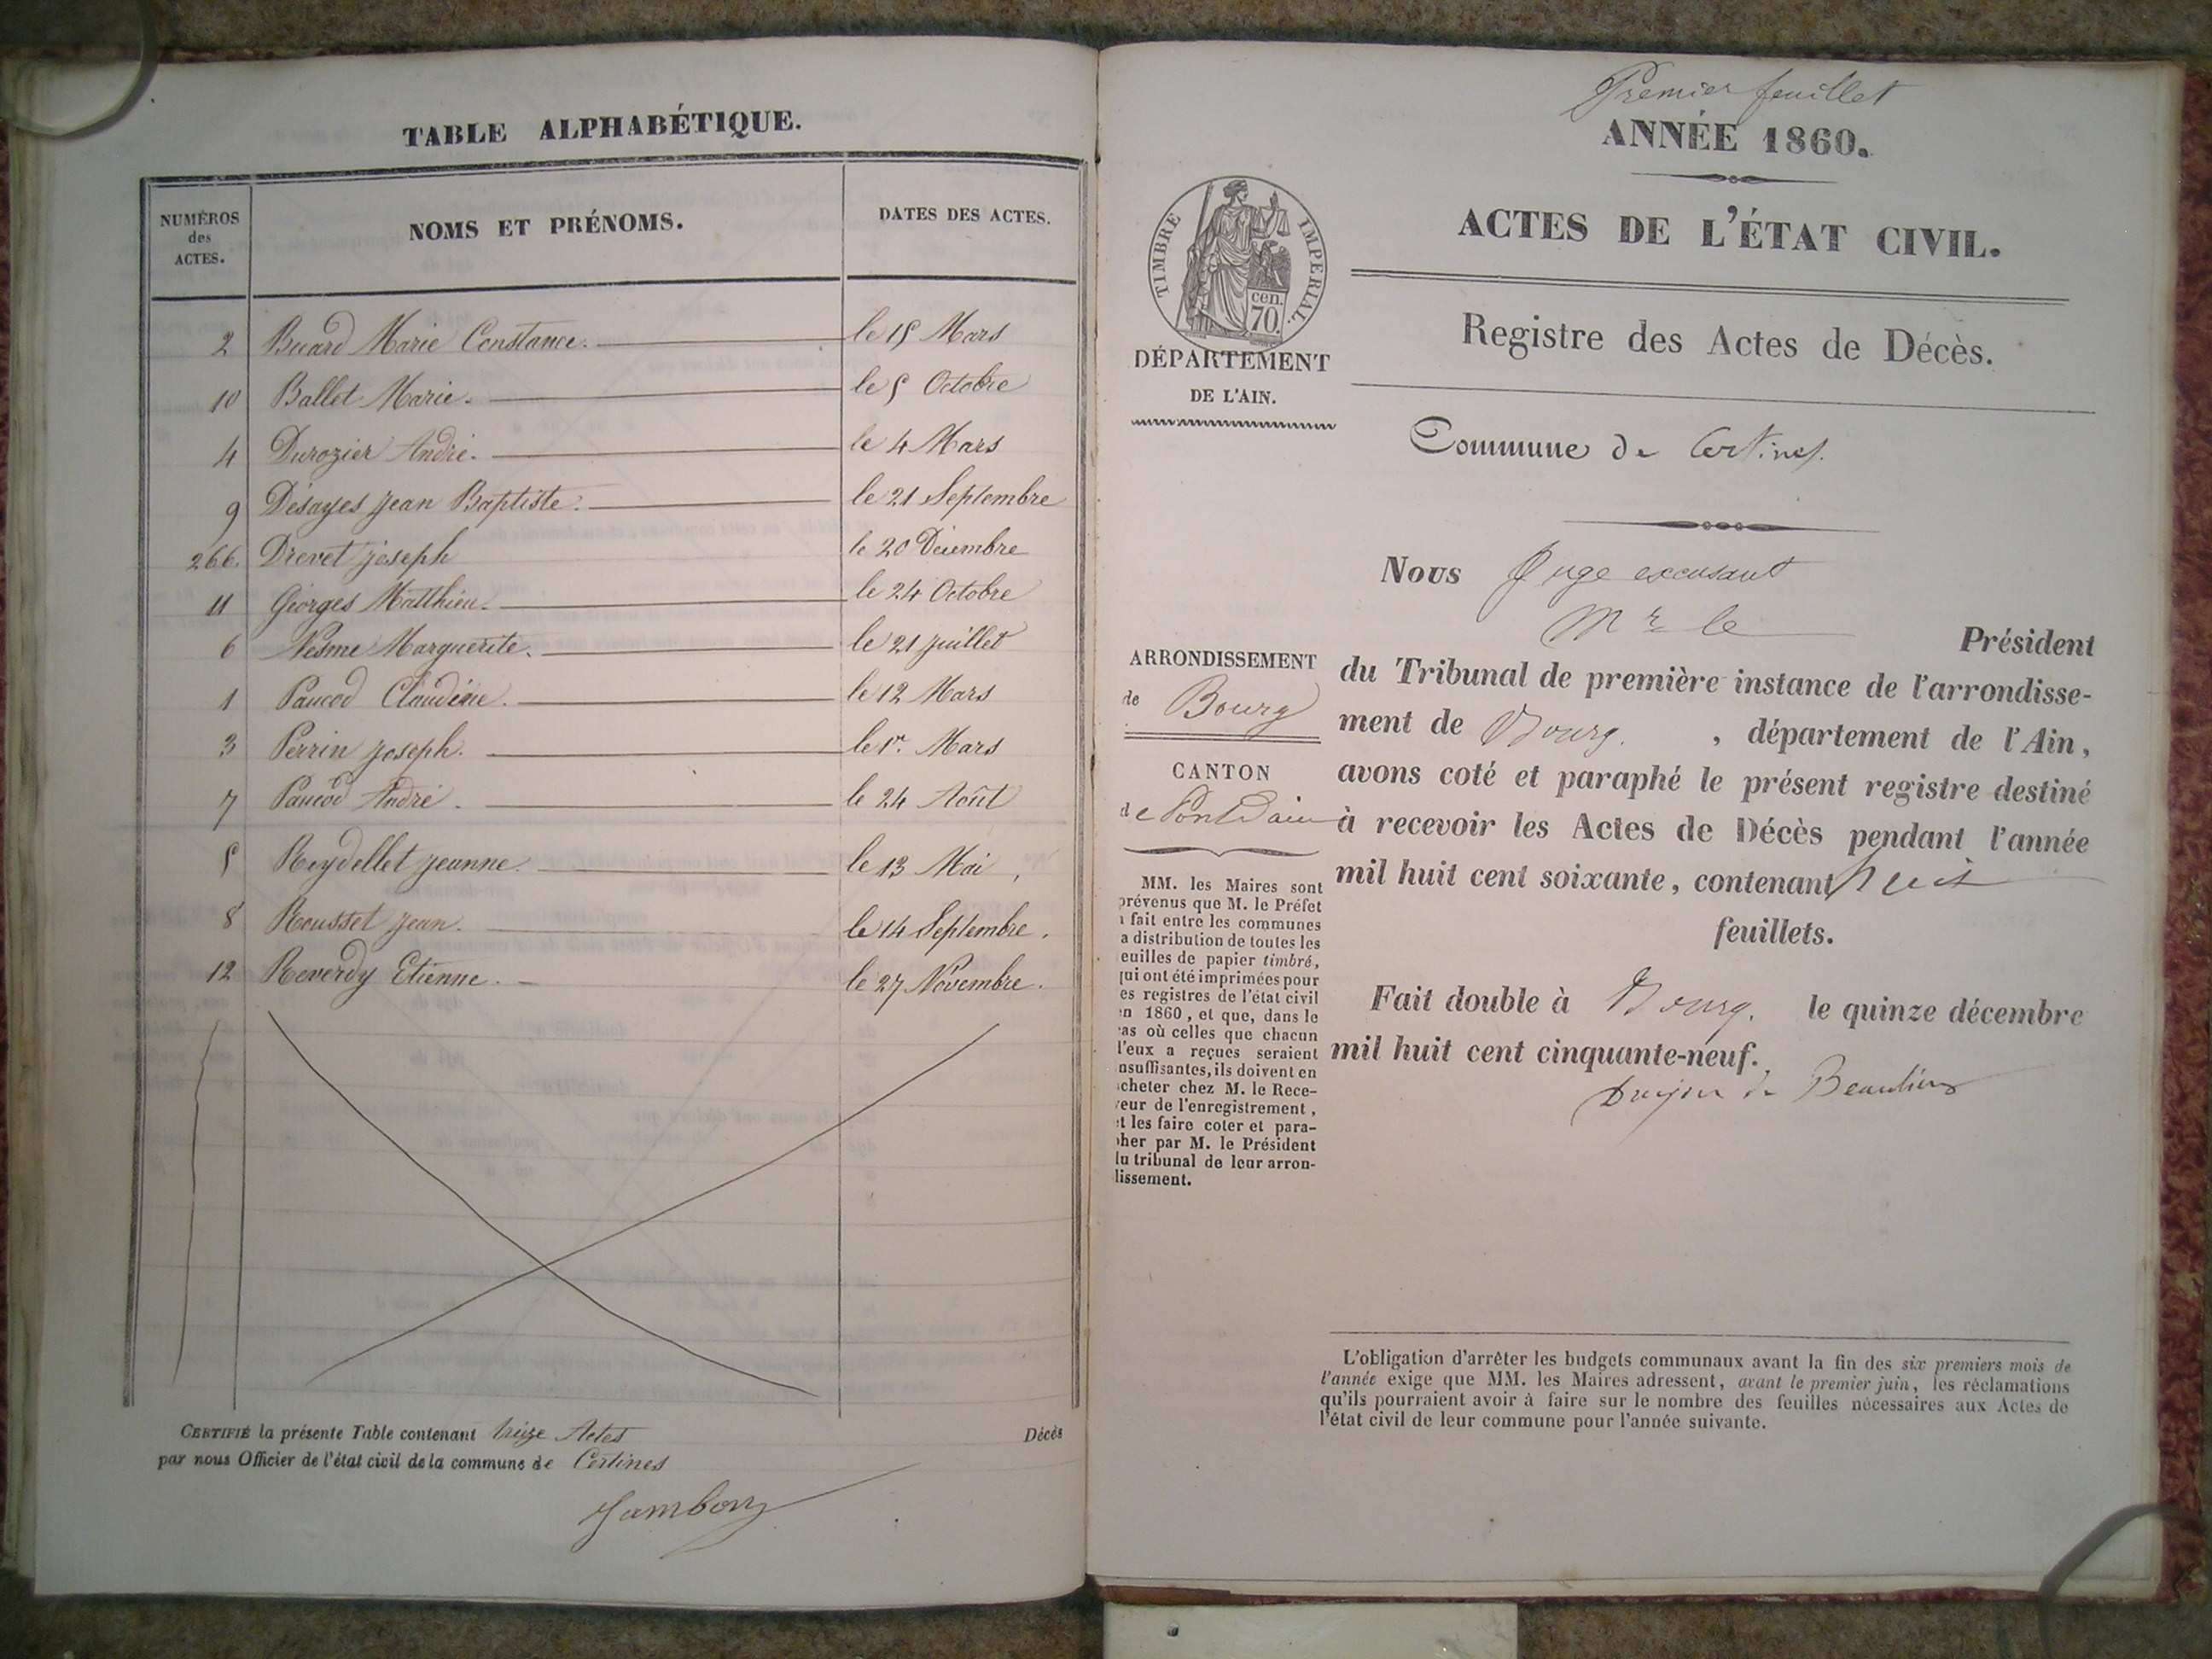 TABLE ALPHABÉTIQUE.
NUMÉROS des ACTES. NOMS ET PRÉNOMS. DATES DES ACTES.
2 Buard Marie Constance. le 15 Mars
10 Ballet Marie. le 5 Octobre
4 Durozier André. le 4 Mars
9 Désayes jean Baptiste. le 21 Septembre
266. Drevet joseph le 20 Décembre
11 Géorges Matthieu. le 24 Octobre
6 Nésme Marguerite. le 21 juillet
1 Paucod Claudine. le 12 Mars
3 Perrin joseph. le 1r. Mars
7 Paucod André. le 24 Août
5 Reydellet jeanne. le 13 Mai
8 Rousset jean. le 14 Septembre.
12 Reverdy Etienne. le 27 Novembre.
CERTIFIÉ la présente Table contenant treize Actes Décès
par nous Officier de l'état civil de la commune de Certines
Jambon
Premier feuillet
ANNÉE 1860.
ACTES DE L'ÉTAT CIVIL.
TIMBRE IMPERIAL.
cen.
70.
DÉPARTEMENT
DE L'AIN.
Registre des Actes de Décès.
Commune de Certines.
Nous Juge excusant
Mr le Président
du Tribunal de première instance de l'arrondisse-
ment de Bourg. , département de l'Ain,
avons coté et paraphé le présent registre destiné
à recevoir les Actes de Décès pendant l'année
mil huit cent soixante, contenant huit
feuillets.
Fait double à Bourg. le quinze décembre
mil huit cent cinquante-neuf.
de Beaulieu
ARRONDISSEMENT
de Bourg
CANTON
de Pont d'ain
MM. les Maires sont
prévenus que M. le Préfet
a fait entre les communes
a distribution de toutes les
euilles de papier timbré,
qui ont été imprimées pour
es registres de l'état civil
en 1860, et que, dans le
cas où celles que chacun
l'eux a reçues seraient
nsuffisantes, ils doivent en
cheter chez M. le Rece-
veur de l'enregistrement,
et les faire coter et para-
pher par M. le Président
du tribunal de leur arron-
lissement.
L'obligation d'arrêter les budgets communaux avant la fin des six premiers mois de
l'année exige que MM. les Maires adressent, avant le premier juin, les réclamations
qu'ils pourraient avoir à faire sur le nombre des feuilles nécessaires aux Actes de
l'état civil de leur commune pour l'année suivante.